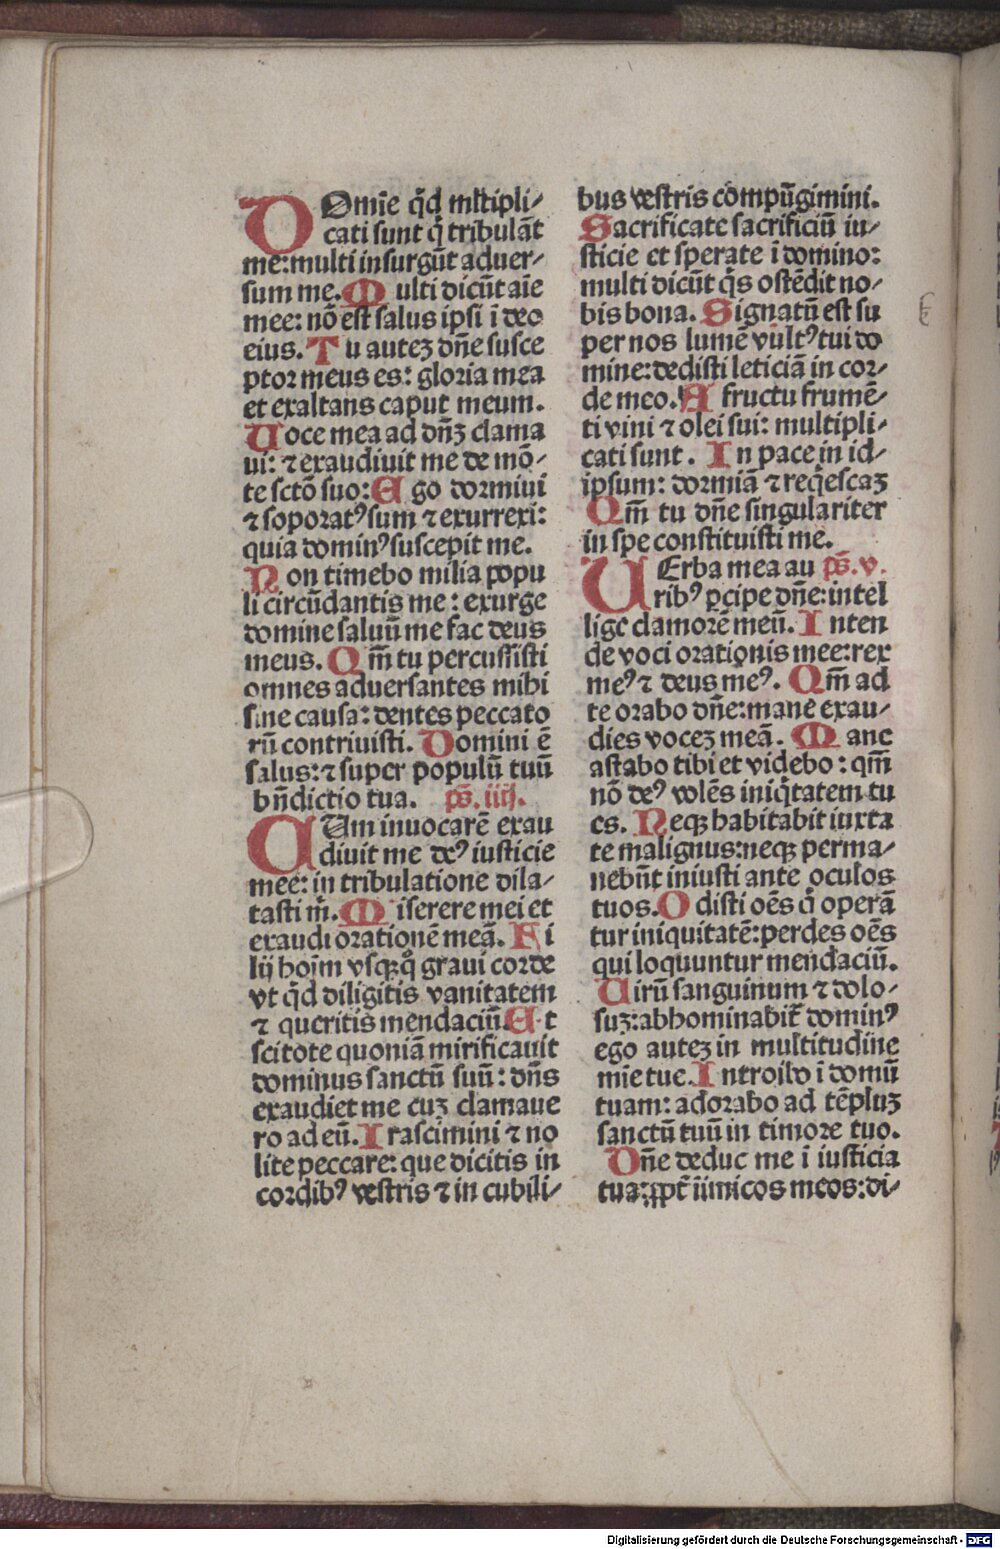 DOmīe q̄d mltipli/
cati sunt q̇ tribulāt
me: multi insurgūt aduer/
sum me. Multi dicūt aīe
mee: nō est salus ipsi ī deo
eius. Tu autez dn̄e susce
ptor meus es: gloria mea
et exaltans caput meum.
Uoce mea ad dn̄ꝫ clama
ui: ⁊ exaudiuit me de mō/
te sctō suo: Ego dormiui
⁊ soporatꝰ sum ⁊ exurrexi:
quia dominꝰ suscepit me.
Non timebo milia popu
li circūdantis me: exurge
domine saluū me fac deus
meus. Qm̄ tu percussisti
omnes aduersantes mihi
sine causa: dentes peccato
rū contriuisti. Domini ē
salus: ⁊ super populū tuū
bn̄dictio tua. ps̄. iiij.
CUm inuocarē exau
diuit me deꝰ iusticie
mee: in tribulatione dila/
tasti m̄. Miserere mei et
exaudi orationē meā. Fi
lij hoīm vsqꝫ q̇ graui corde
vt q̄d diligitis vanitatem
⁊ queritis mendaciū. Et
scitote quoniā mirificauit
dominus sanctū suū: dn̄s
exaudiet me cuꝫ clamaue
ro ad eū. Irascimini ⁊ no
lite peccare: que dicitis in
cordibꝰ vestris ⁊ in cubili/
bus vestris cōmpūgimini.
Sacrificate sacrificiū iu/
sticie et sperate ī domino:
multi dicūt q̇s ostēdit no/
bis bona. Signatū est su
per nos lumē vultꝰ tui do
mine: dedisti leticiā in cor/
de meo. A fructu frumē/
ti vini ⁊ olei sui: multipli/
cati sunt. In pace in id/
ipsum: dormiā ⁊ req̇escaꝫ
Qm̄ tu dn̄e singulariter
in spe constituisti me.
UErba mea au ps̄. v.
ribꝰ ꝑcipe dn̄e: intel
lige clamorē meū. Inten
de voci orationis mee: rex
meꝰ ⁊ deus meꝰ. Qm̄ ad
te orabo dn̄e: mane exau/
dies voceꝫ meā. Mane
astabo tibi et videbo: qm̄
nō deꝰ volēs iniq̇tatem tu
es. Neqꝫ habitabit iuxta
te malignus: neqꝫ perma/
nebūt iniusti ante oculos
tuos. Odisti oēs q̇ operā
tur iniquitatē: perdes oēs
qui loquuntur mendaciū.
Uirū sanguinum ⁊ dolo/
suꝫ: abhominabit̄ dominꝰ
ego auteꝫ in multitudine
mīe tue. Introibo ī domū
tuam: adorabo ad tēpluꝫ
sanctū tuū in timore tuo.
Dn̄e deduc me ī iusticia
tua: ꝓpt̄ iīmicos meos: di/
Digitalisierung gefördert durch die Deutsche Forschungsgemeinschaft - DFG